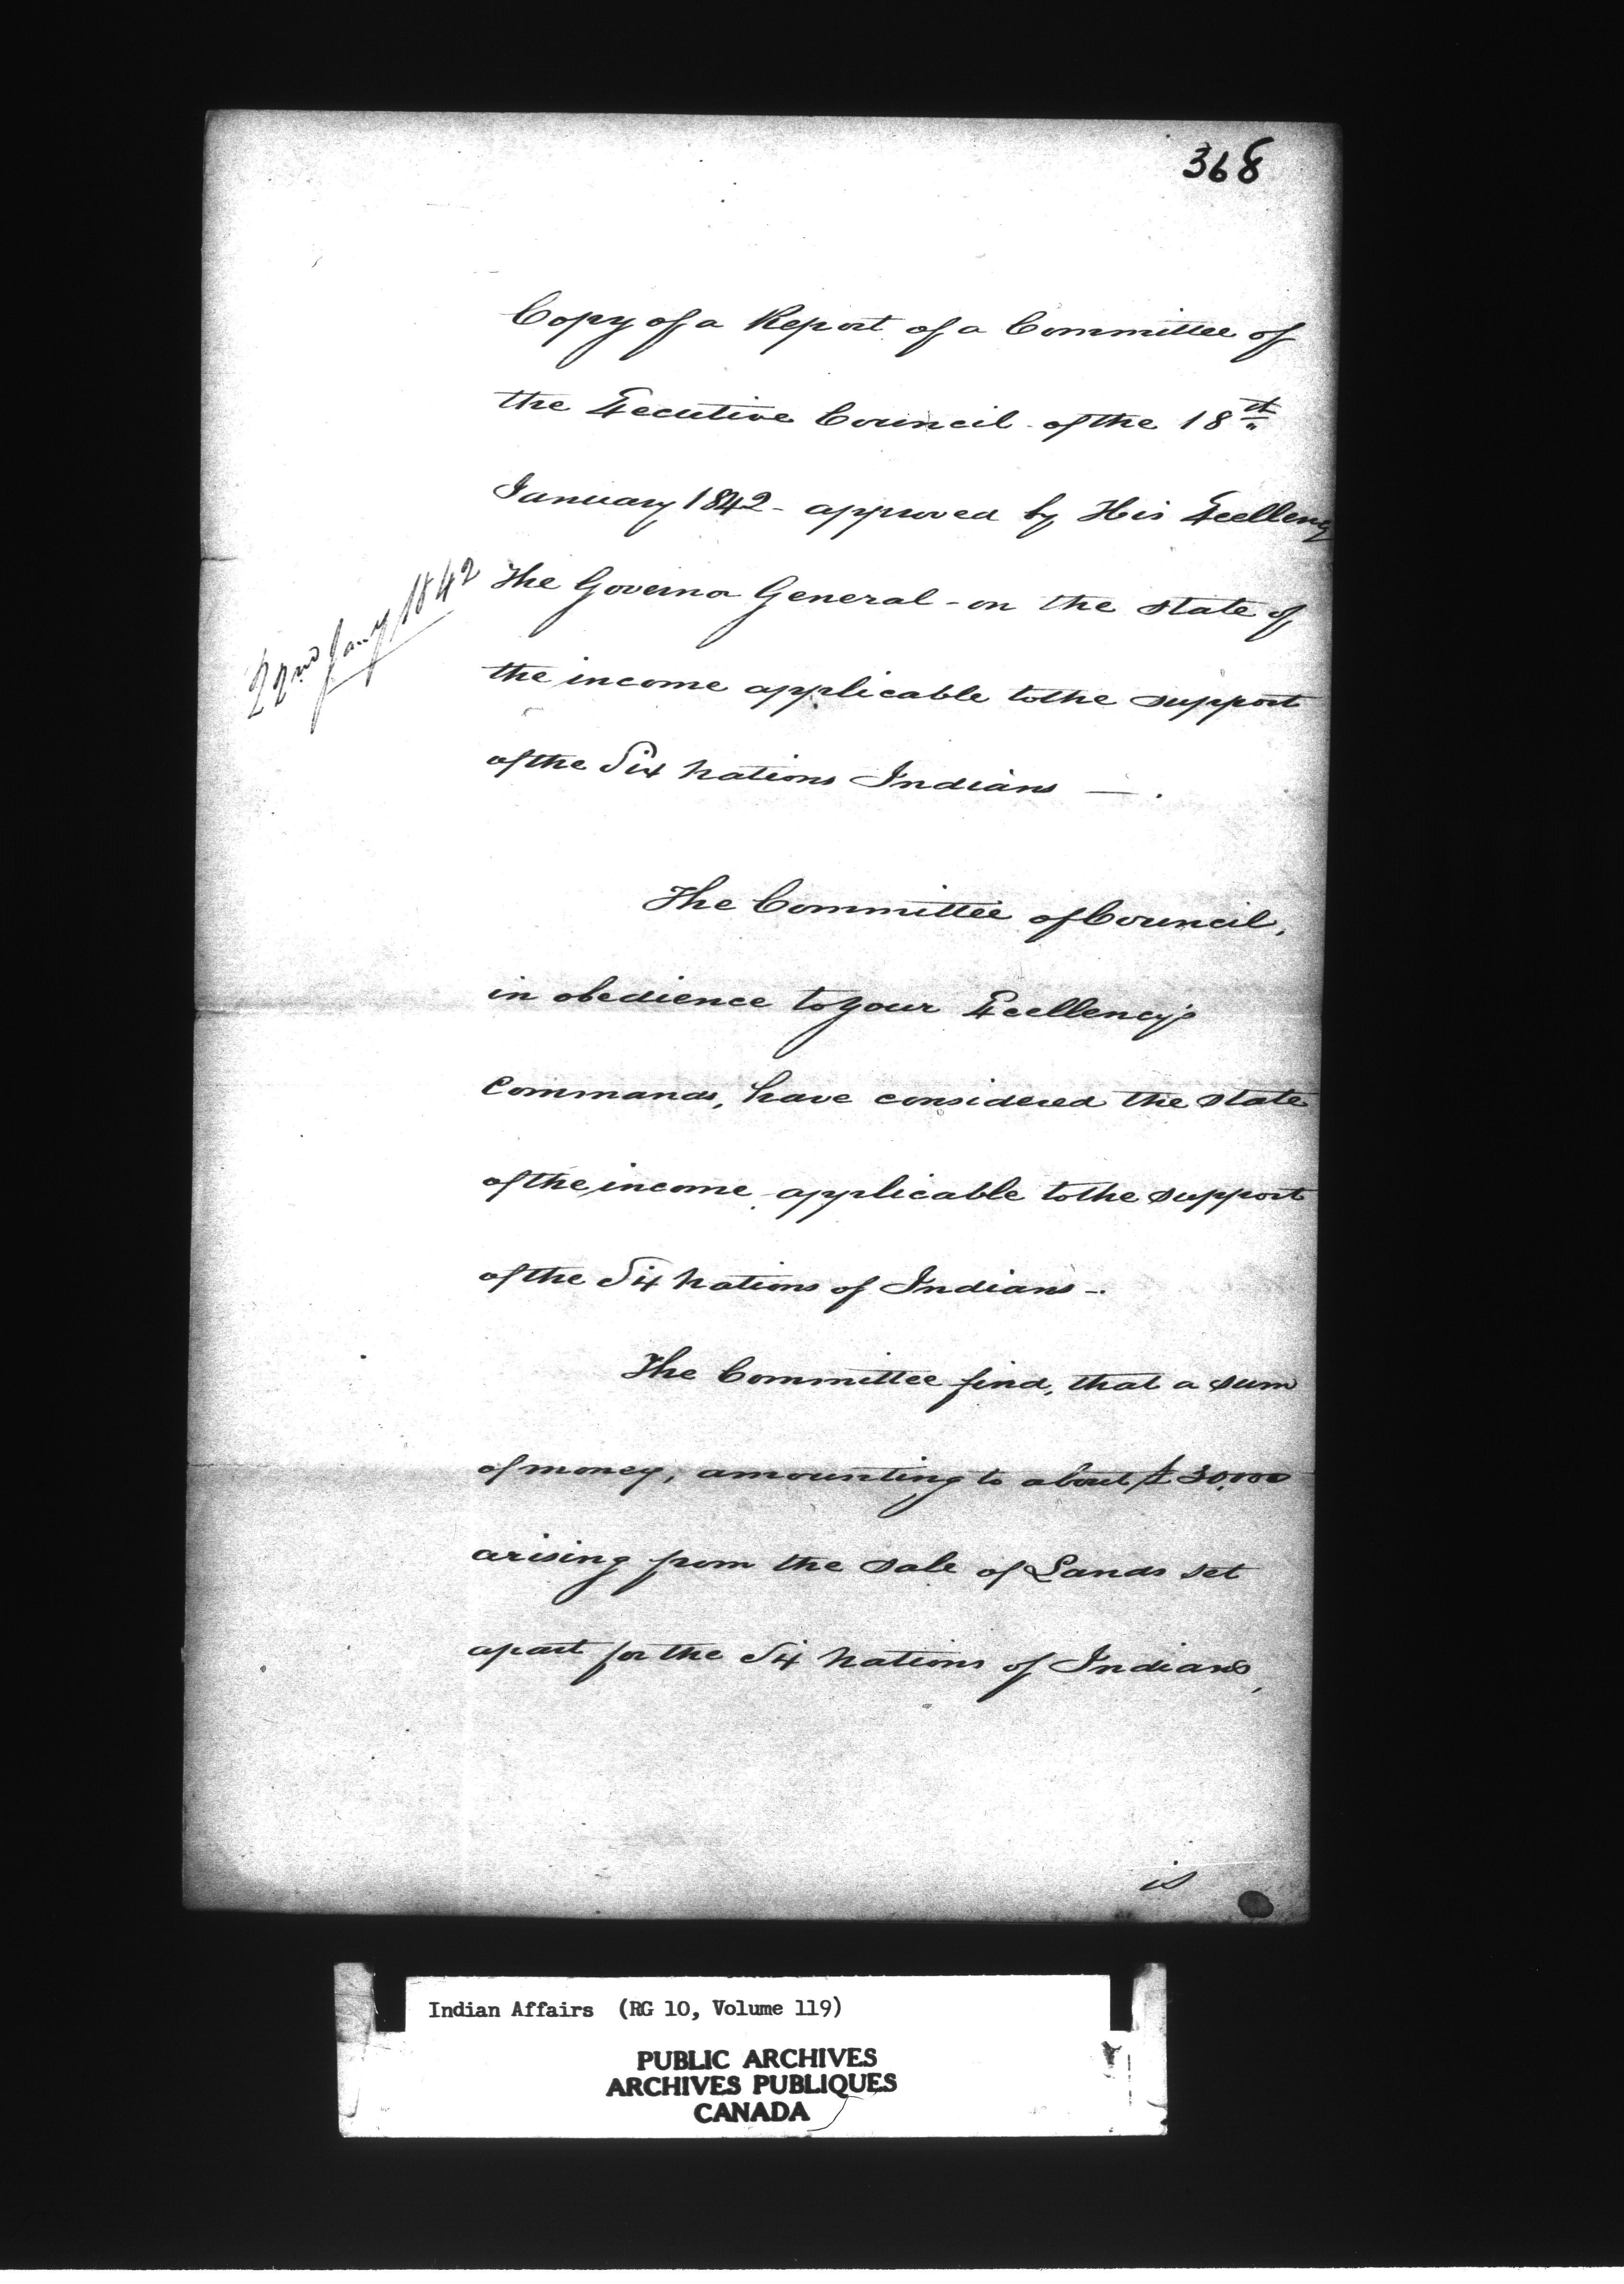 368
Copy of a Report of a Committee of
the Executive Council of the 18th
January 1842 - approved by His Excellency
22nd Jany 1842
The Governor General - on the state of
the income applicable to the support
of the Six Nations Indians — .
The Committee of Council,
in obedience to your Excellency's
Commands, have considered the state
of the income applicable to the support
of the Six Nations of Indians -.
The Committee find, that a sum
of money, amounting to about £ 30,000
arising from the sale of Lands set
apart for the Six Nations of Indians,
is
Indian Affairs (RG 10, Volume 119)
PUBLIC ARCHIVES
ARCHIVES PUBLIQUES
CANADA